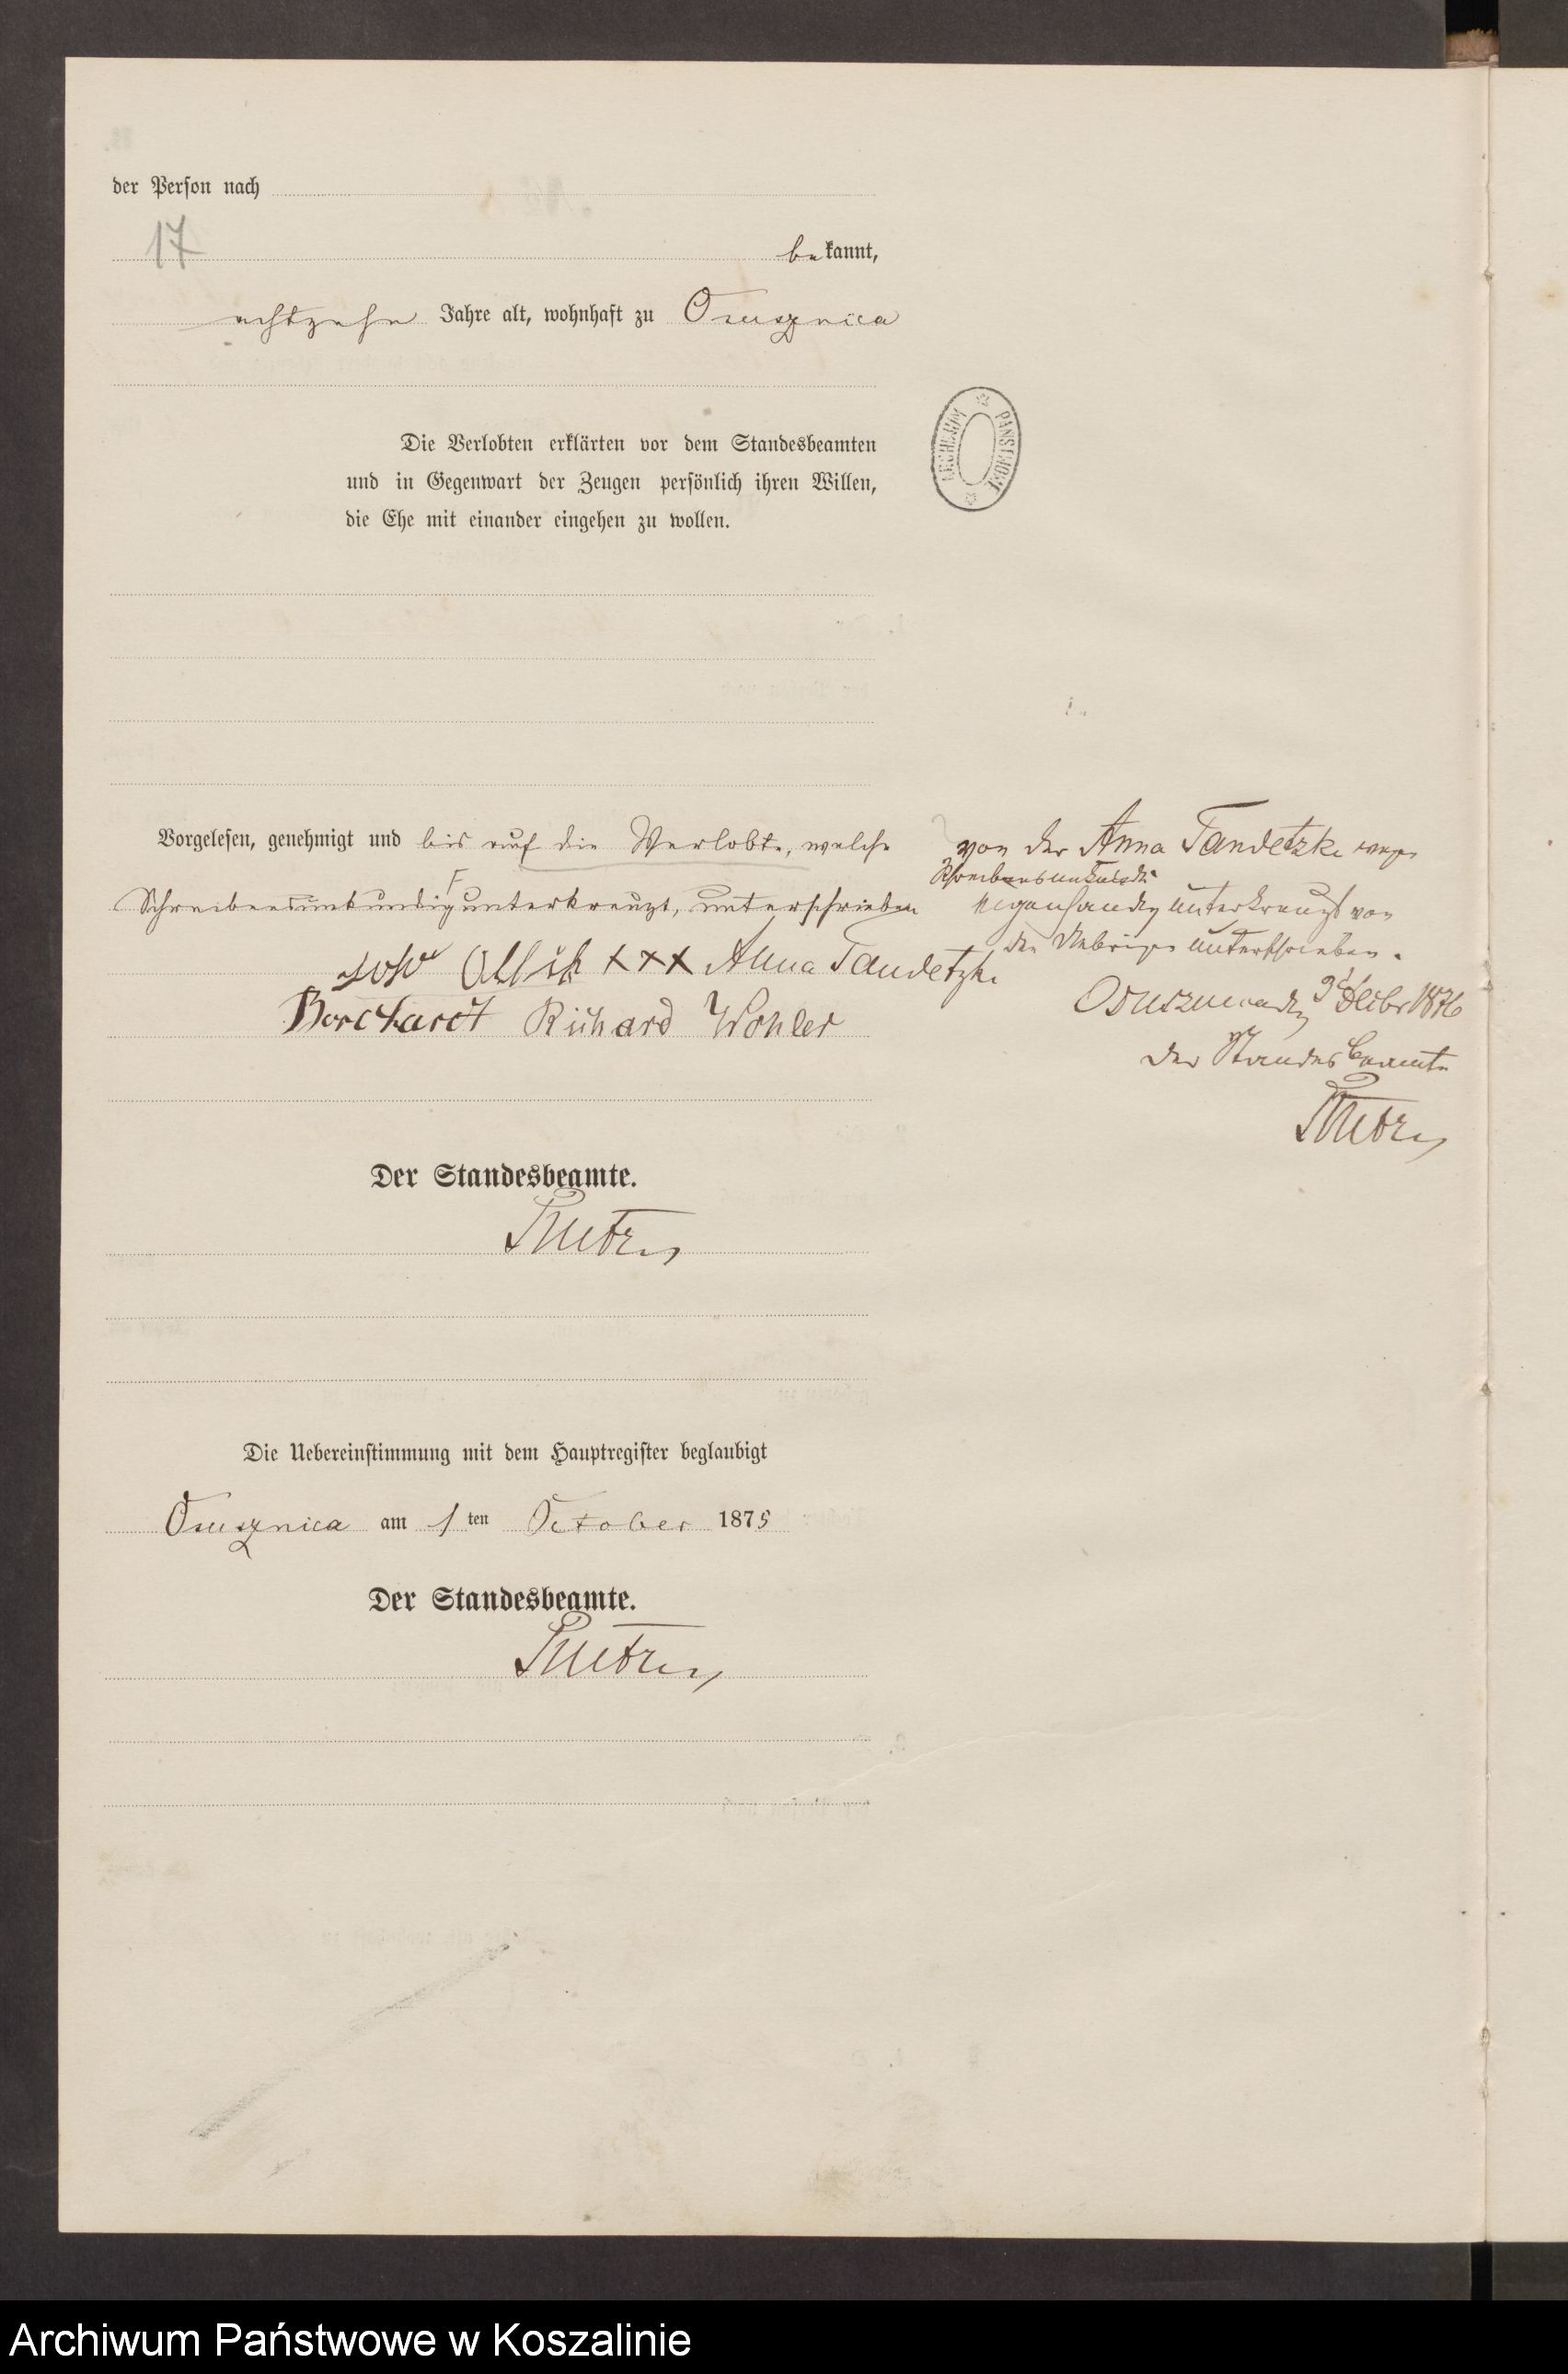 der Person nach
17
bekannt,
achtzehn Jahre alt, wohnhaft zu Osusznica
Die Verlobten erklärten vor dem Standesbeamten
und in Gegenwart der Zeugen persönlich ihren Willen,
die Ehe mit einander eingehen zu wollen.
ARCHIWUM PAŃSTWOWE
Vorgelesen, genehmigt und bis auf die Verlobte, welche
Schreibensunkundig unterkreuzt, unterschrieben
xxx Anna Tandetzke
Borchardt Richard Wohler
von der Anna Tandetzke wegen
Schreibensunkunde
eigenhändig unterkreuzt von
den Uebrigen unterschrieben.
1876
Der Standesbeamte
Der Standesbeamte.
Die Uebereinstimmung mit dem Hauptregister beglaubigt
Osusznica am 1ten October 1875
Der Standesbeamte.
Archiwum Państwowe w Koszalinie